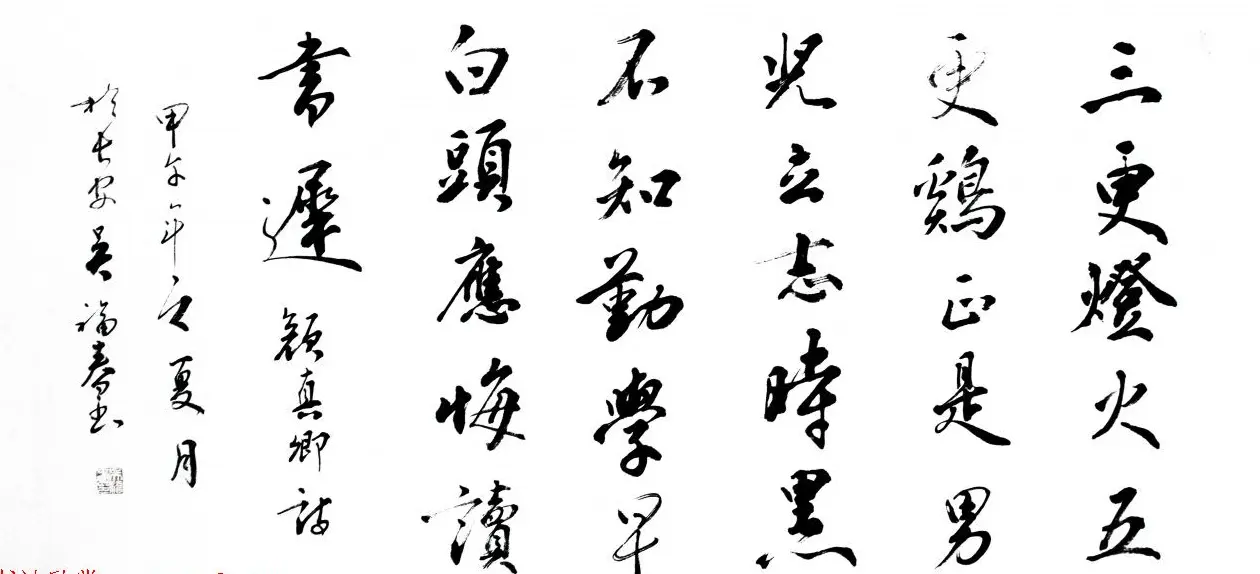 三更燈火五
更鷄正是男
兒立志時黑
不知勤學早
白頭應悔讀
書遲 顔真卿詩
甲午年之夏月
於長安吳福春書